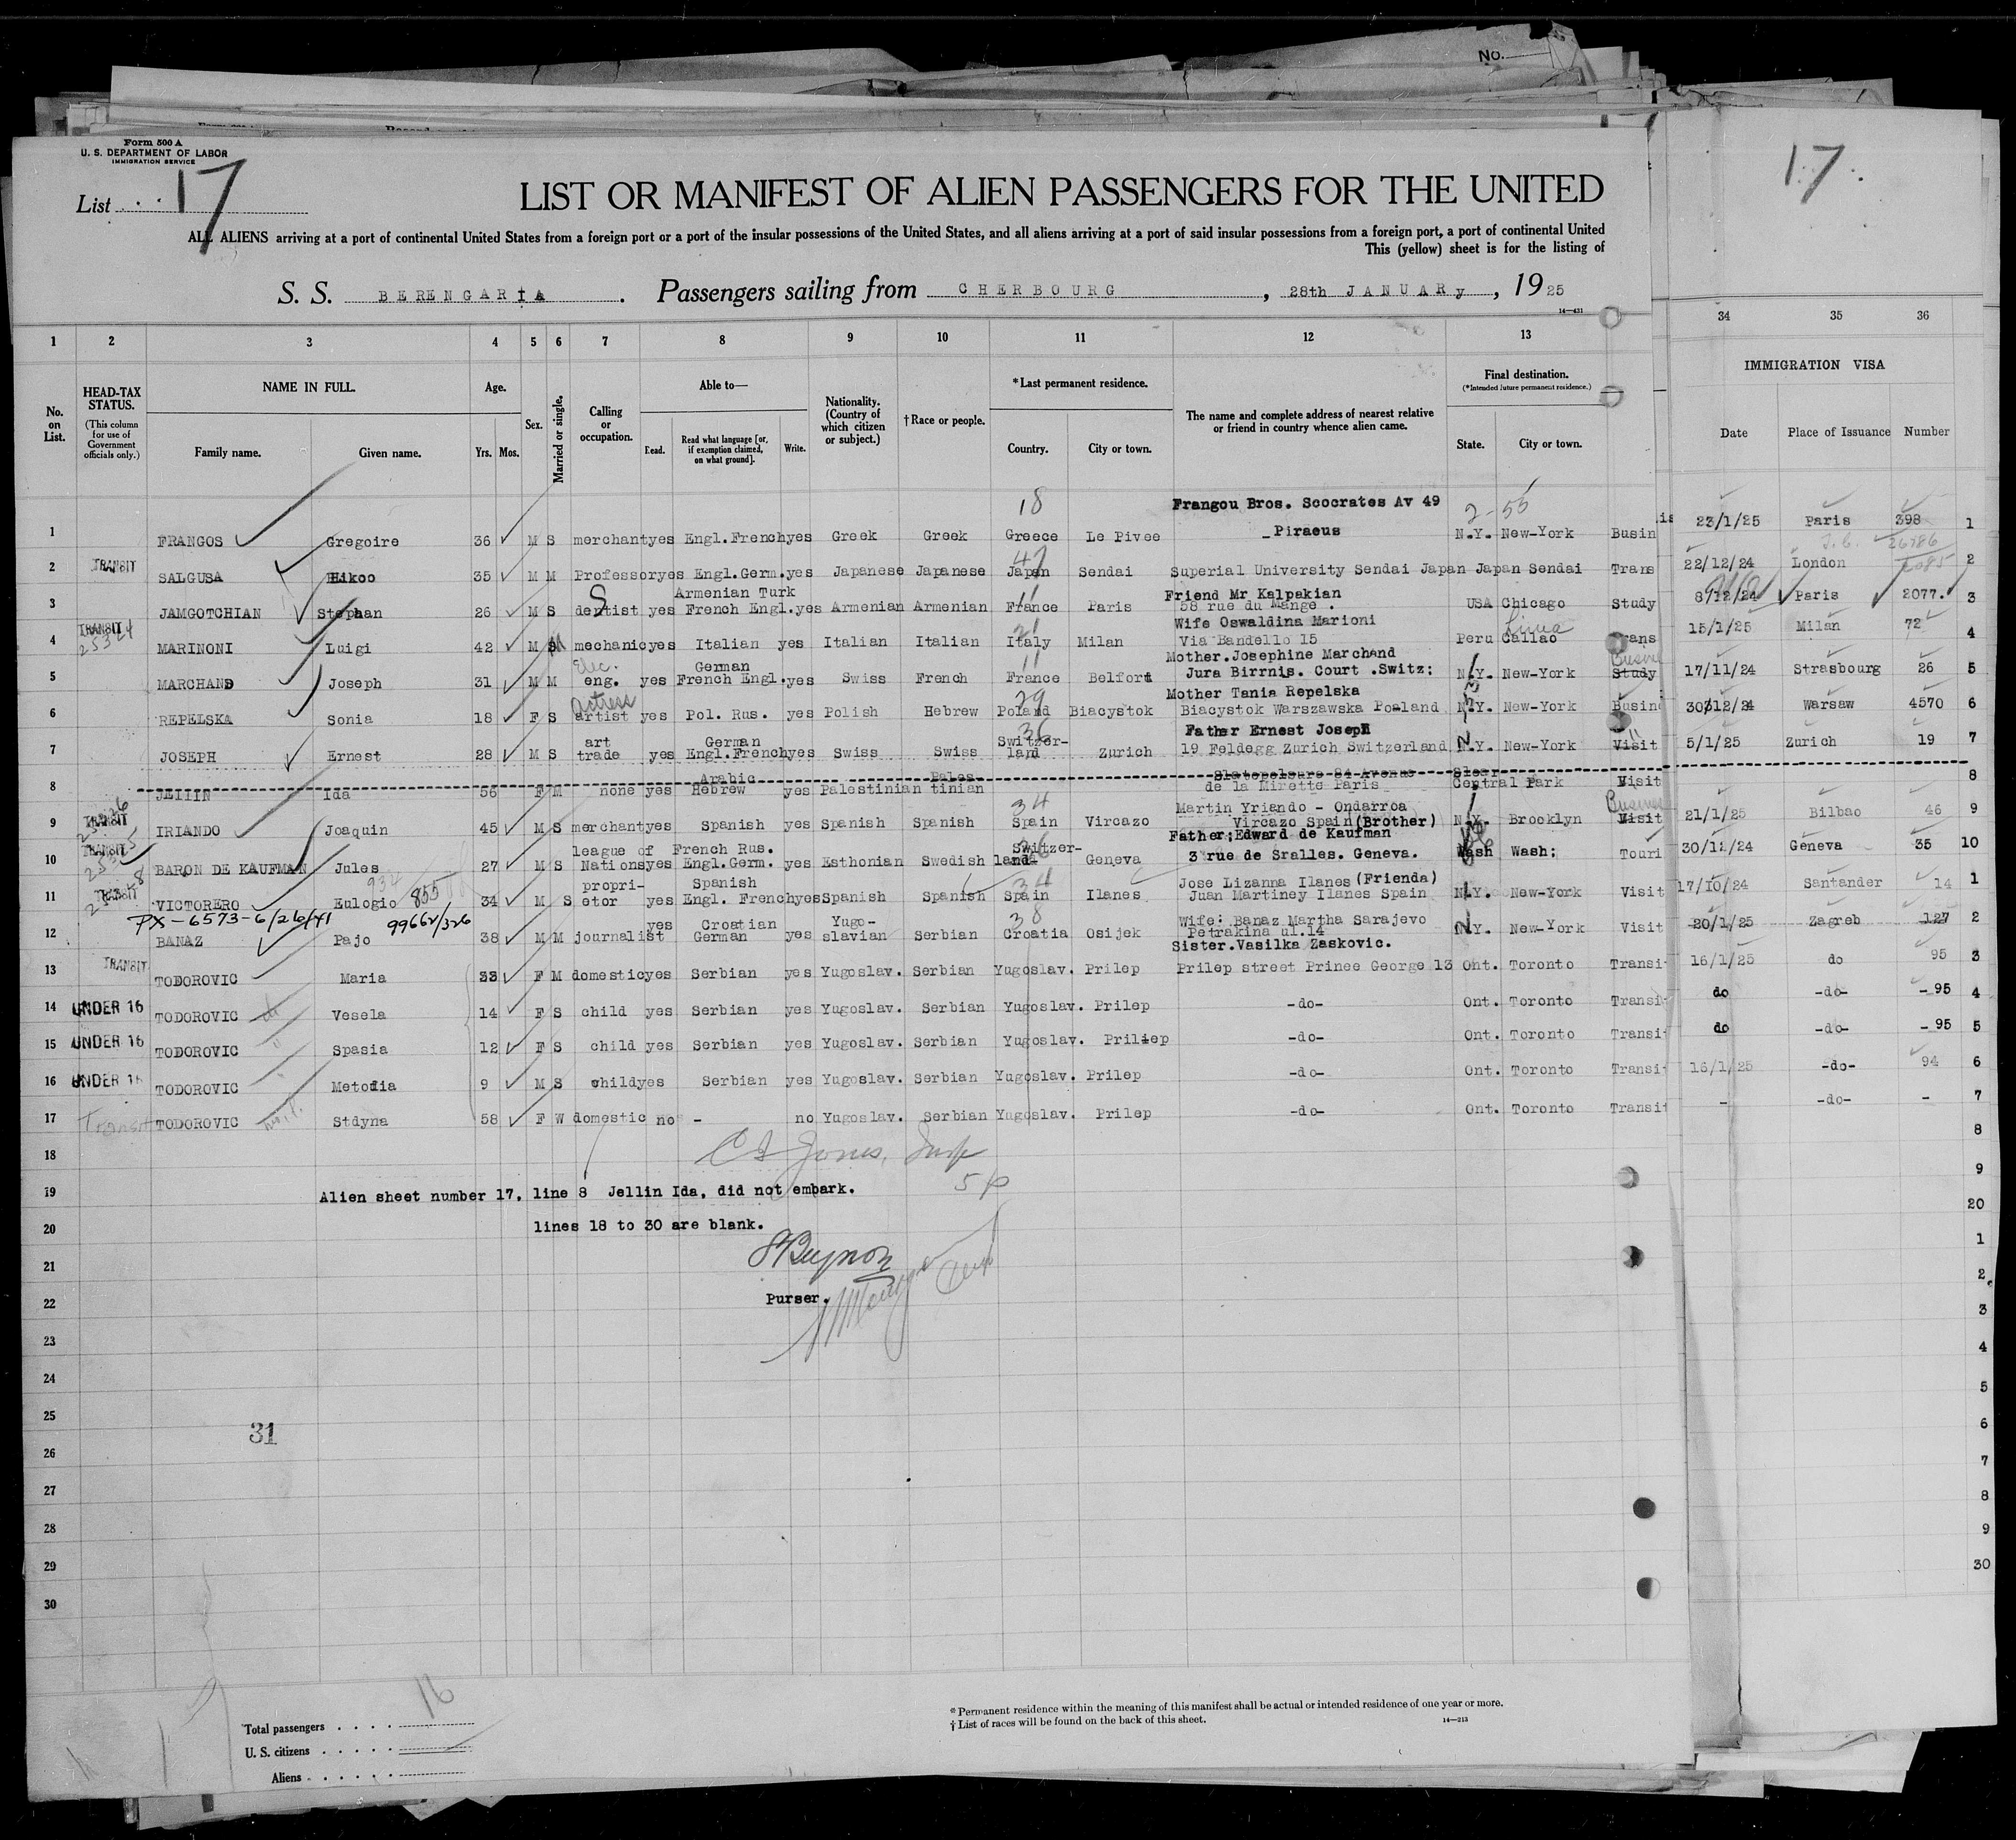 No.
Form 500 A
U. S. DEPARTMENT OF LABOR
IMMIGRATION SERVICE
List 17
17
LIST OR MANIFEST OF ALIEN PASSENGERS FOR THE UNITED
ALL ALIENS arriving at a port of continental United States from a foreign port or a port of the insular possessions of the United States, and all aliens arriving at a port of said insular possessions from a foreign port, a port of continental United
This (yellow) sheet is for the listing of
S. S. BERENGARIA. Passengers sailing from CHERBOURG, 28th JANUARy, 1925
14—431
1 2 3 4 5 6 7 8 9 10 11 12 13 34 35 36
No. on List.
HEAD-TAX STATUS. (This column for use of Government officials only.)
NAME IN FULL. Family name. Given name.
Age. Yrs. Mos.
Sex.
Married or single.
Calling or occupation.
Able to— Read. Read what language [or, if exemption claimed, on what ground]. Write.
Nationality. (Country of which citizen or subject.)
†Race or people.
*Last permanent residence. Country. City or town.
The name and complete address of nearest relative or friend in country whence alien came.
Final destination. (*Intended future permanent residence.) State. City or town.
IMMIGRATION VISA
Date Place of Issuance Number
18 Frangou Bros. Scocrates Av 49 2-55
1 FRANGOS Gregoire 36 M S merchant yes Engl.French yes Greek Greek Greece Le Pivee Piraeus N.Y. New-York Busin 23/1/25 Paris 398 1
2 TRANSIT SALGUSA Hikoo 35 M M Professor yes Engl.Germ. yes Japanese Japanese Japan Sendai Superial University Sendai Japan Japan Sendai Trans 22/12/24 London 2
Armenian Turk Friend Mr Kalpakian
3 JAMGOTCHIAN Stephan 26 M S dentist yes French Engl. yes Armenian Armenian France Paris 58 rue du Mange . USA Chicago Study 8/12/24 Paris 2077. 3
TRANSIT 25324 Wife Oswaldina Marioni Lima
4 MARINONI Luigi 42 M M mechanic yes Italian yes Italian Italian Italy Milan Via Bandello 15 Peru Callao Trans 15/1/25 Milan 72 4
Elec. German 11 Mother.Josephine Marchand
5 MARCHAND Joseph 31 M M eng. yes French Engl. yes Swiss French France Belfort Jura Birrnis. Court .Switz: N.Y. New-York Study 17/11/24 Strasbourg 26 5
actress 29 Mother Tania Repelska
6 REPELSKA Sonia 18 F S artist yes Pol. Rus. yes Polish Hebrew Poland Biacystok Biacystok Warszawska Poaland N.Y. New-York Busin 30/12/24 Warsaw 4570 6
art German 36 Switzer- Father Ernest Joseph
7 JOSEPH Ernest 28 M S trade yes Engl.French yes Swiss Swiss land Zurich 19 Feldegg Zurich Switzerland N.Y. New-York Visit 5/1/25 Zurich 19 7
Arabic Pales- Slatopolsure 84 Avenue
8 JEllIN Ida 56 F M none yes Hebrew yes Palestinian tinian de la Mirette Paris Central Park Visit 8
34 Martin Yriando - Ondarroa
9 TRANSIT IRIANDO Joaquin 45 M S merchant yes Spanish yes Spanish Spanish Spain Vircazo Vircazo Spain(Brother) N.Y. Brooklyn Visit 21/1/25 Bilbao 46 9
TRANSIT league of French Rus. Switzer- Father;Edward de Kaufman
10 BARON DE KAUFMAN Jules 27 M S Nations yes Engl.Germ. yes Esthonian Swedish land Geneva 3 rue de Sralles. Geneva. Wash Wash: Touri 30/12/24 Geneva 35 10
TRANSIT propri- Spanish 34 Jose Lizanna Ilanes(Frienda)
11 VICTORERO Eulogio 855 34 M S etor yes Engl. French yes Spanish Spanish Spain Ilanes Juan Martiney Ilanes Spain N.Y. New-York Visit 17/10/24 Santander 14 1
PX-6573-6/26/41 99662/326 yes Croatian Yugo- 38 Wife: Banaz Martha Sarajevo
12 BANAZ Pajo 38 M M journalist German yes slavian Serbian Croatia Osijek Petrakina ul.14 N.Y. New-York Visit 20/1/25 Zagreb 127 2
Sister.Vasilka Zaskovic.
13 TRANSIT TODOROVIC Maria 33 F M domestic yes Serbian yes Yugoslav. Serbian Yugoslav. Prilep Prilep street Prinee George 13 Ont. Toronto Transi 16/1/25 do 95 3
14 UNDER 16 TODOROVIC Vesela 14 F S child yes Serbian yes Yugoslav. Serbian Yugoslav. Prilep -do- Ont. Toronto Transi do -do- - 95 4
15 UNDER 16 TODOROVIC Spasia 12 F S child yes Serbian yes Yugoslav. Serbian Yugoslav. Priliep -do- Ont. Toronto Transi do -do- - 95 5
16 UNDER 16 TODOROVIC Metodia 9 M S child yes Serbian yes Yugoslav. Serbian Yugoslav. Prilep -do- Ont. Toronto Transi 16/1/25 -do- 94 6
17 Transit TODOROVIC Stdyna 58 F W domestic no - no Yugoslav. Serbian Yugoslav. Prilep -do- Ont. Toronto Transit - -do- - 7
18 Jones, Insp 8
19 Alien sheet number 17, line 8 Jellin Ida, did not embark. 9
20 lines 18 to 30 are blank. 20
21 1
22 Purser. 2
23 3
24 4
25 5
31
26 6
27 7
28 8
29 9
30 30
Total passengers . . . . 16
U. S. citizens . . . . .
Aliens . . . . . .
* Permanent residence within the meaning of this manifest shall be actual or intended residence of one year or more.
† List of races will be found on the back of this sheet.
14—213